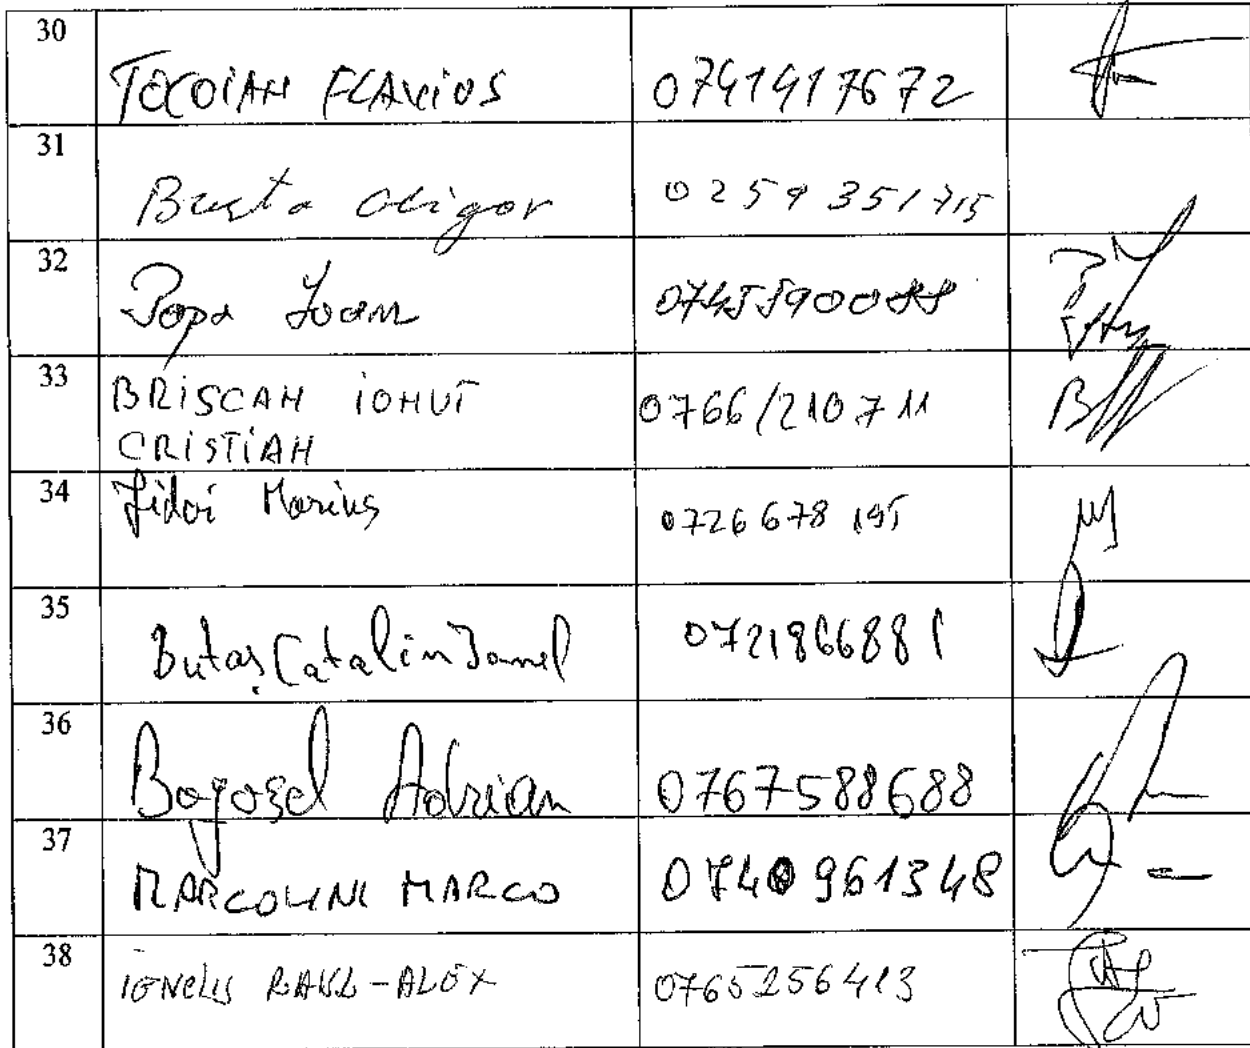 30
TOCOIAN FLAVIUS 0741417672
31
Busta Gligor 0259 351715
32
Popa Ioan
33
BRISCAN IONUT 0766/210711
CRISTIAN
34
Jidoi Marius 0726678195
35
Butaș Catalin Ionel 0721866881
36
Bogosel Adrian 0767588688
37
MARCOLINI MARCO 0740961348
38
RAUL-ALEX 0765256413